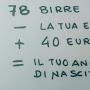 78 BIRRE
- LA TUA E
+ 40 EUR
= IL TUO AN
DI NASCI